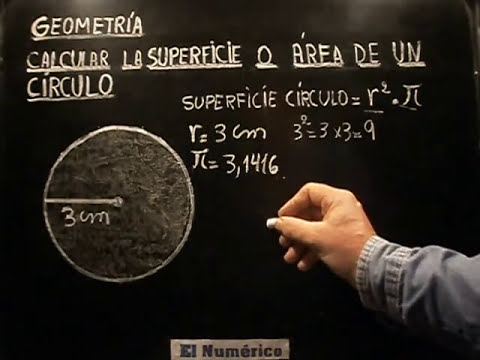 GEOMETRÍA
CALCULAR LA SUPERFICIE O ÁREA DE UN
CÍRCULO
SUPERFICIE CÍRCULO = r² · π
r = 3 cm 3² = 3 x 3 = 9
π = 3,1416
3 cm
El Numérico